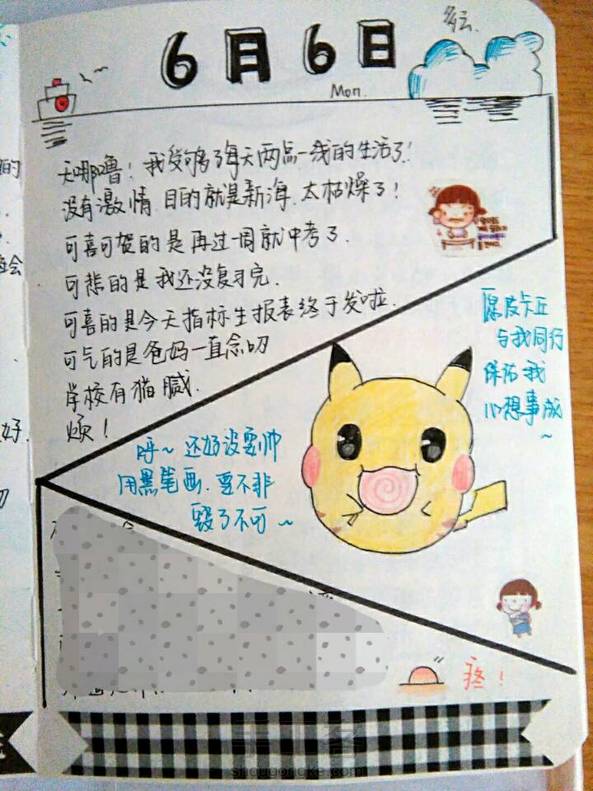 6月6日
多云.
Mon.
天哪噜！我受够了每天两点一线的生活了！
没有激情.目的就是新海.太枯燥了！
可喜可贺的是再过一周就中考了.
可悲的是我还没复习完.
可喜的是今天指标生报表终于发啦.
可气的是爸妈一直念叨
学校有猫腻.
烦！
愿皮卡丘
与我同行
保佑我
心想事成
~
呼~还好没耍帅
用黑笔画.要不非
毁了不可~
疼！
shougongke.com